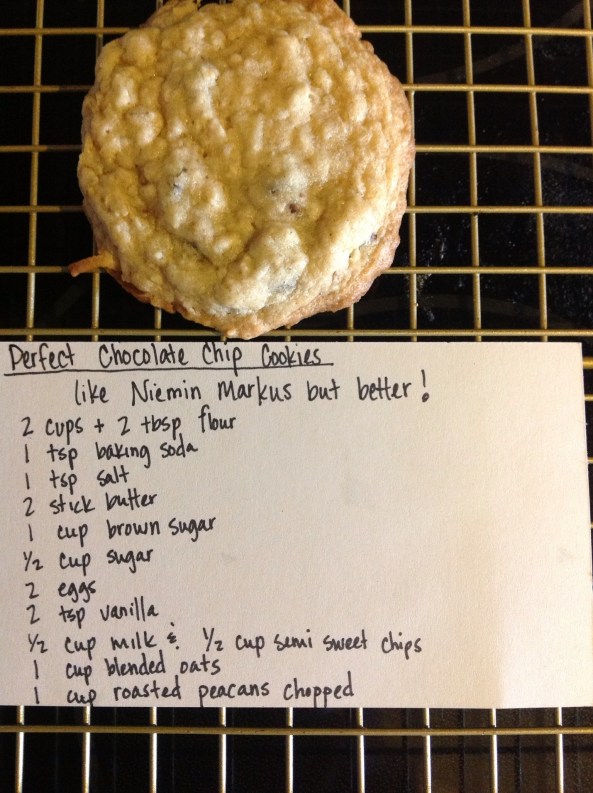 Perfect Chocolate Chip Cookies
like Niemin Markus but better!
2 cups + 2 tbsp flour
1 tsp baking soda
1 tsp salt
2 stick butter
1 cup brown sugar
½ cup sugar
2 eggs
2 tsp vanilla
½ cup milk & ½ cup semi sweet chips
1 cup blended oats
1 cup roasted peacans chopped